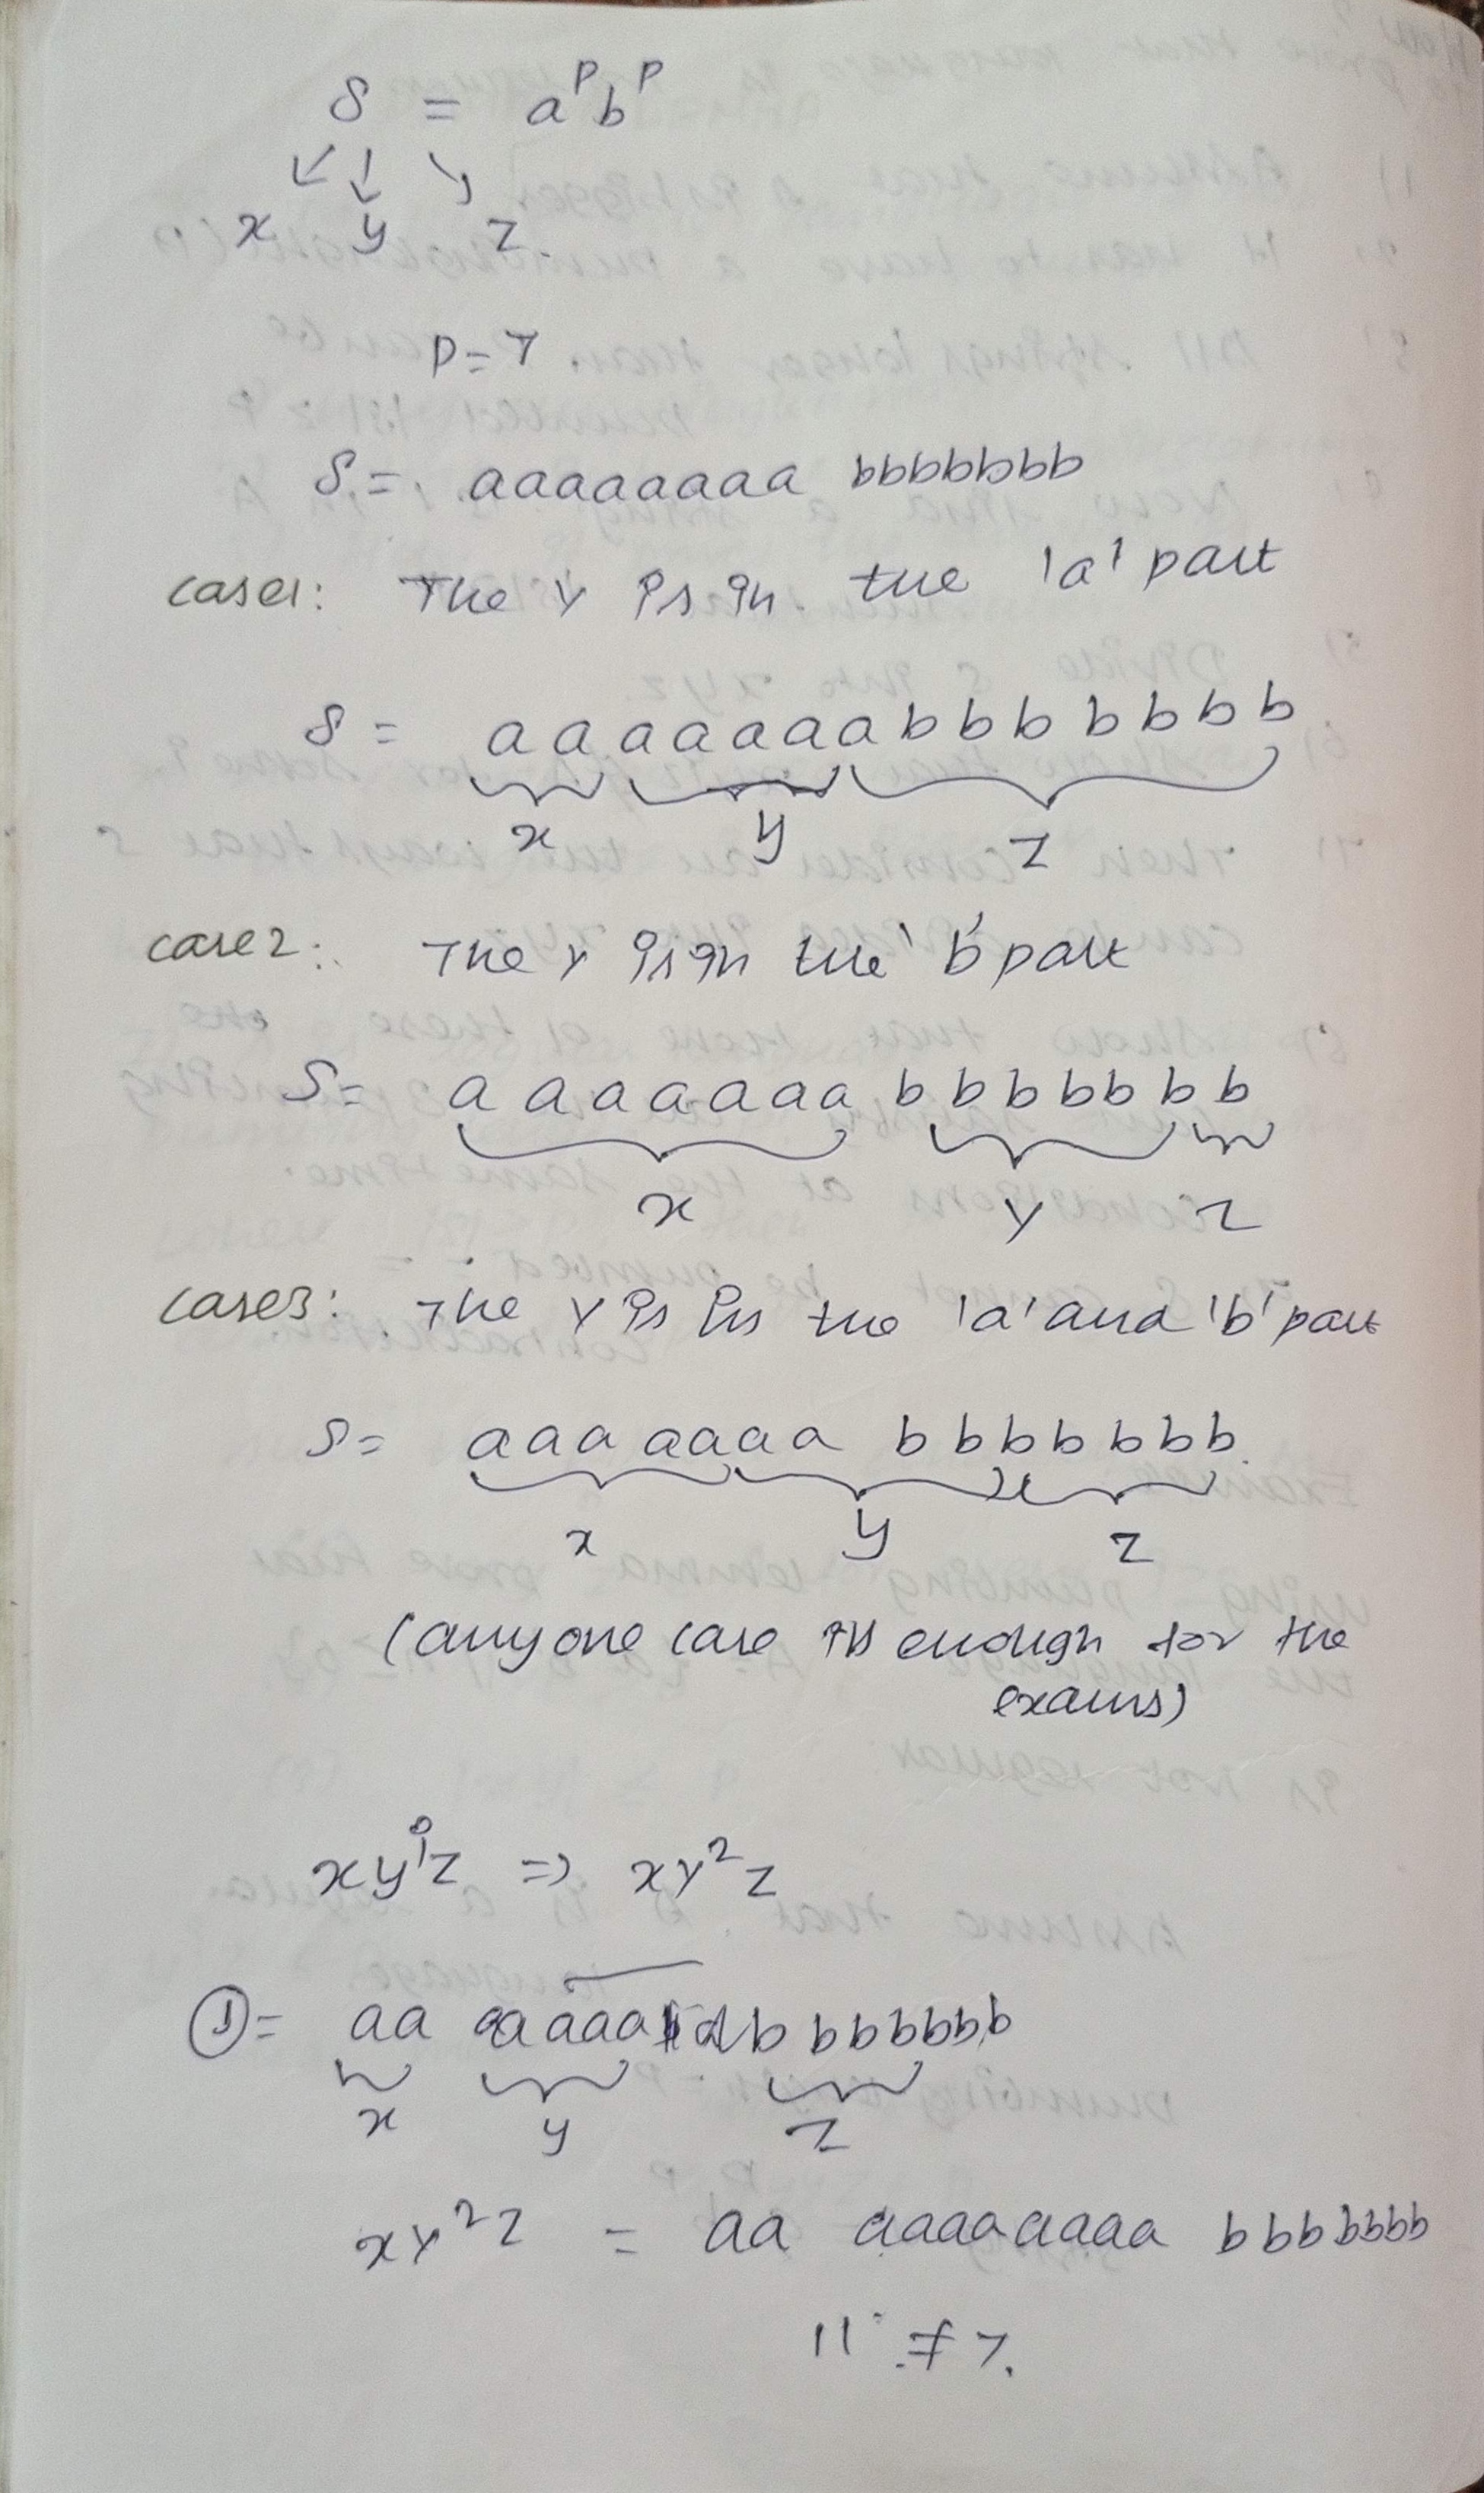 S = a^p b^p
x y z
P=7
S= aaaaaaaa bbbbbbb
case1: The y is in the 'a' part
S = aaaaaaabbbbbbb
x y z
case2: The y is in the 'b' part
S= aaaaaaa bbbbbbb
x y z
case3: The y is in the 'a' and 'b' part
S= aaaaaaa bbbbbbb
x y z
(anyone case is enough for the
exams)
xy^i z => xy^2 z
①= aa aaaa bbbbbbb
x y z
xy^2 z = aa aaaaaaaa bbbbbbb
11 ≠ 7.